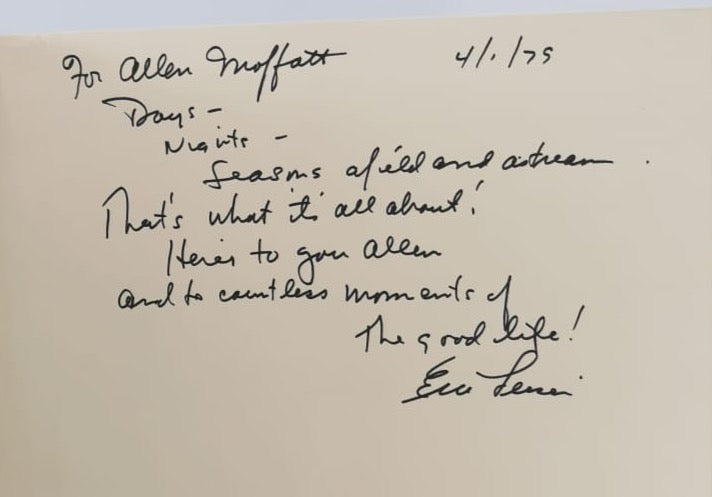 For Allen Moffatt 4/1/75
Days -
Nights -
Seasons afield and astream.
That's what it's all about!
Here's to you Allen
and to countless moments of
the good life!